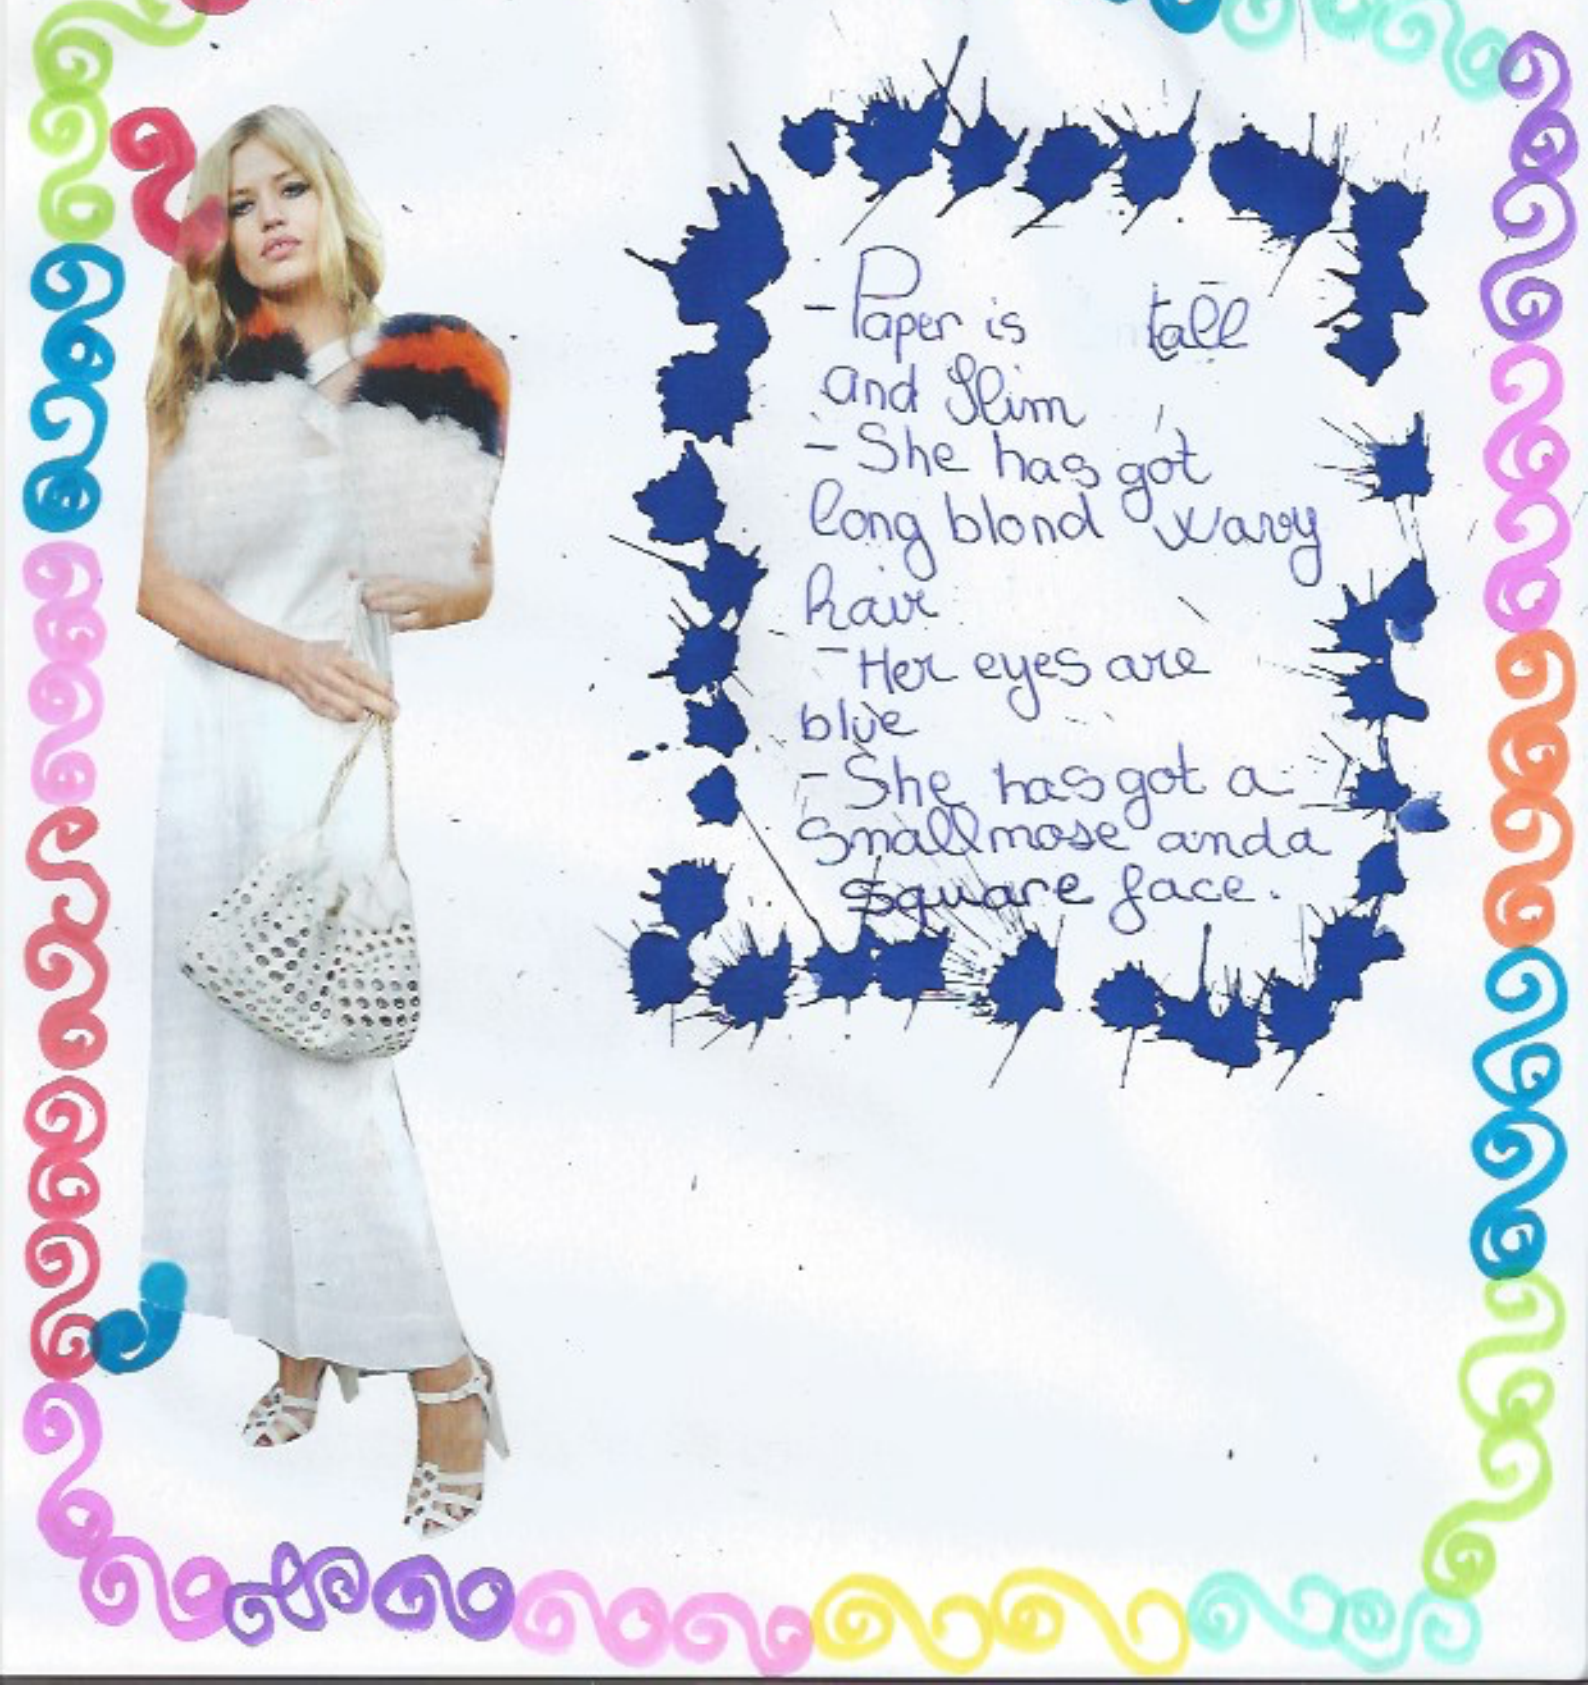 - Paper is tall
and Slim
- She has got
long blond wavy
hair
- Her eyes are
blue
- She has got a
Smallmose anda
square face.